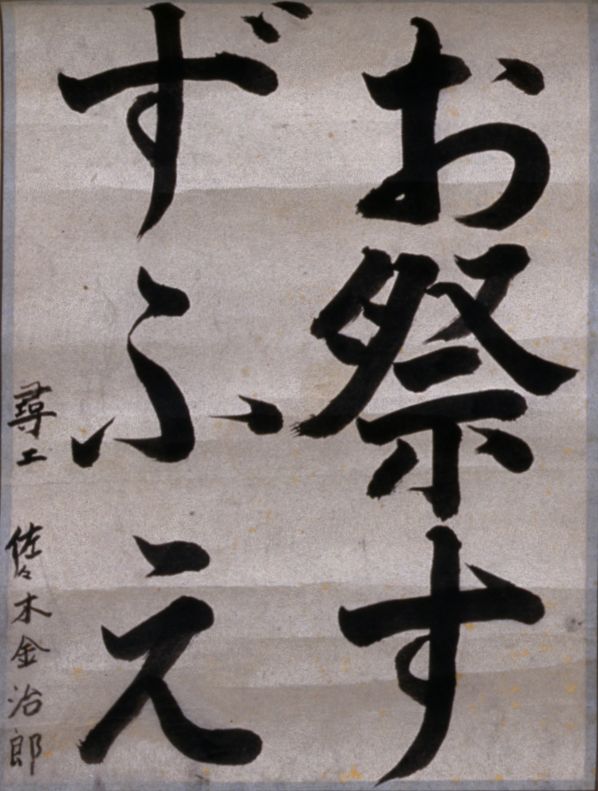 お祭す
ずふえ
尋工 佐々木金治郎